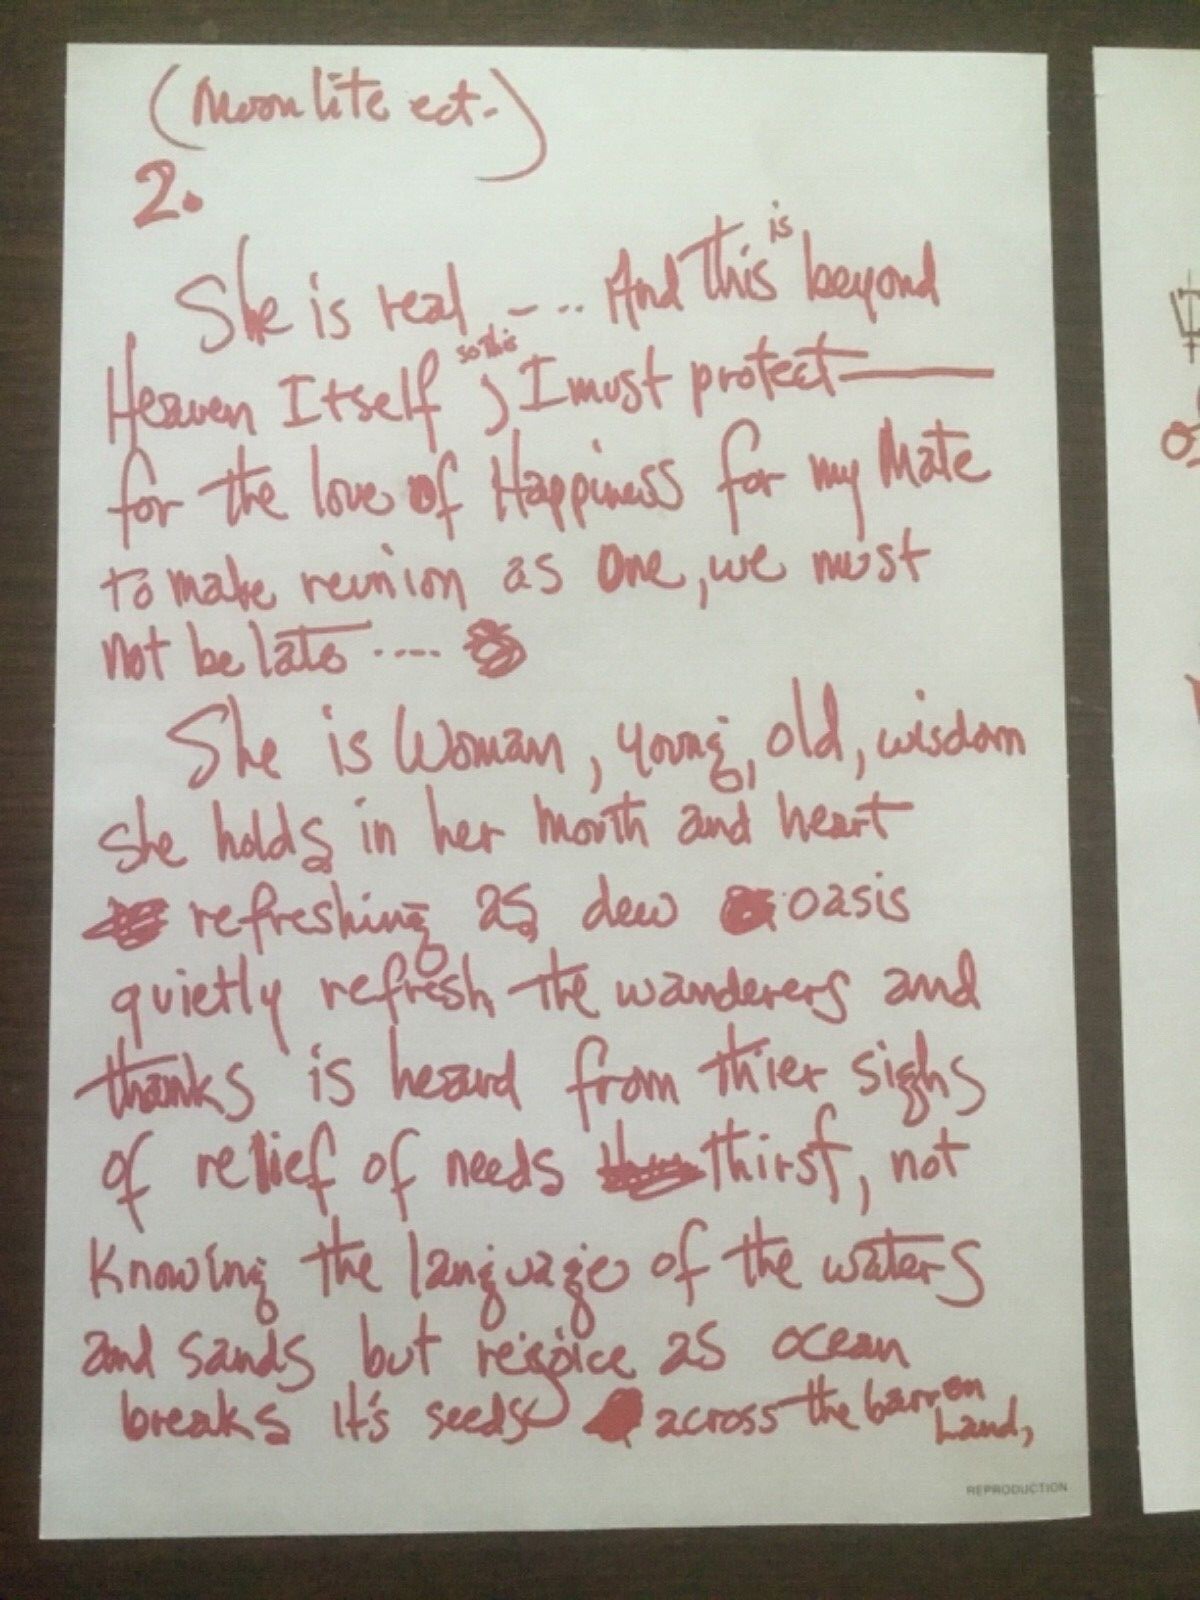 (Moonlite ect.)
2.
She is real ---.. And this is beyond
Heaven Itself so this ; I must protect——
for the love of Happiness for my Mate
to make reunion as One, we must
not be late ....
She is Woman, young, old, wisdom
she holds in her mouth and heart
refreshing as dew oasis
quietly refresh the wanderers and
thanks is heard from thier sighs
of relief of needs thirst, not
knowing the language of the waters
and sands but rejoice as ocean
breaks it's seeds across the barren
Land,
REPRODUCTION